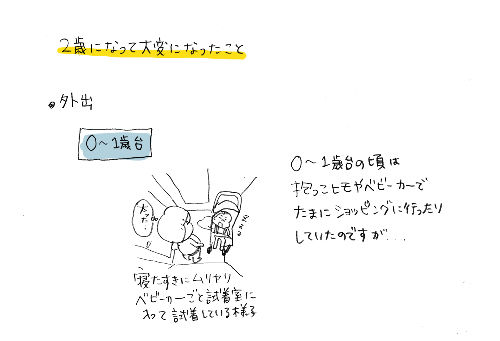 2歳になって大変になったこと
●外出
0〜1歳台
0〜1歳台の頃は
抱っこヒモやベビーカーで
たまにショッピングに行ったり
していたのですが...
寝たすきにムリヤリ
ベビーカーごと試着室に
入って試着している様子